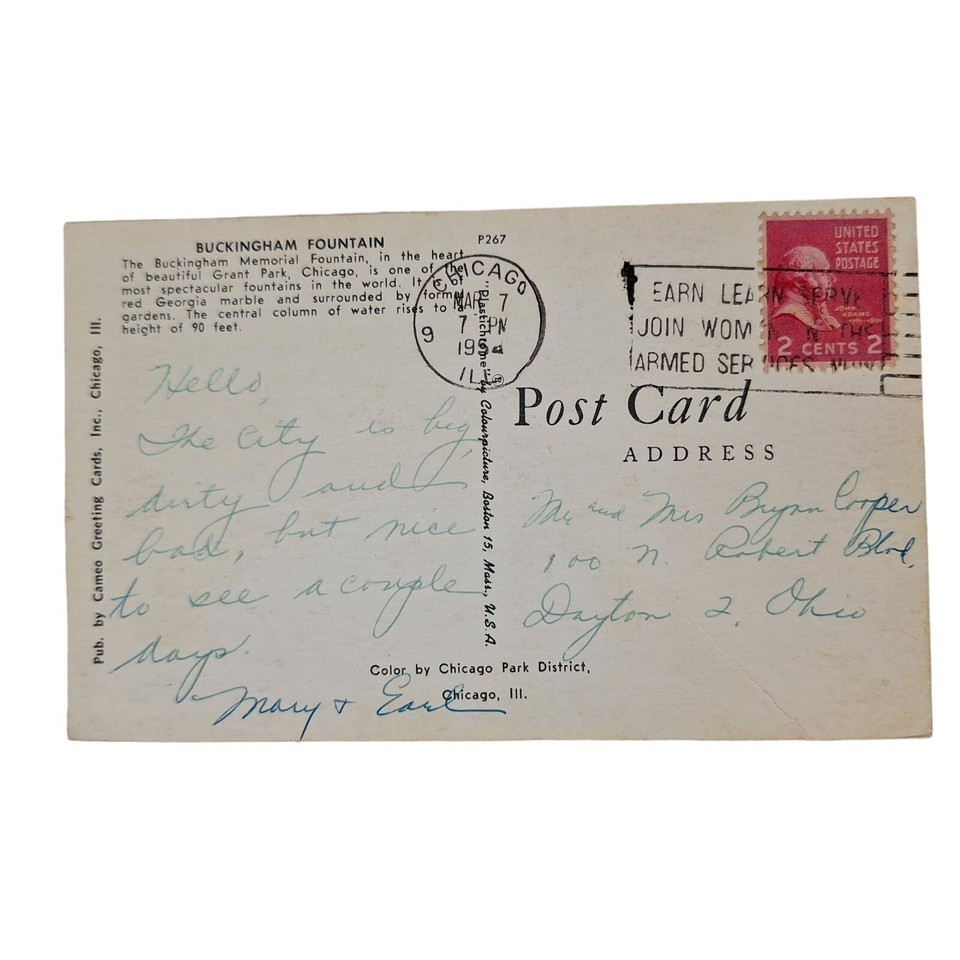 BUCKINGHAM FOUNTAIN
The Buckingham Memorial Fountain, in the heart
of beautiful Grant Park, Chicago, is one of the
most spectacular fountains in the world. It is
red Georgia marble and surrounded by formal
gardens. The central column of water rises to a
height of 90 feet.
P267
Pub. by Cameo Greeting Cards, Inc., Chicago, Ill.
"Plastichrome" by Colourpicture, Boston 15, Mass., U.S.A.
CHICAGO
MAR 7
7 PM
9
ILL
EARN LEARN SERVE
JOIN WOMEN IN THE
ARMED SERVICES NOW!
UNITED
STATES
POSTAGE
JOHN
ADAMS
2 CENTS 2
Post Card
ADDRESS
Hello,
The City is big,
dirty and
bad, but nice
to see a couple
days.
Mary + Earl
Mr and Mrs Brynn Cooper
100 N. Robert Blvd,
Dayton 2, Ohio
Color by Chicago Park District,
Chicago, Ill.